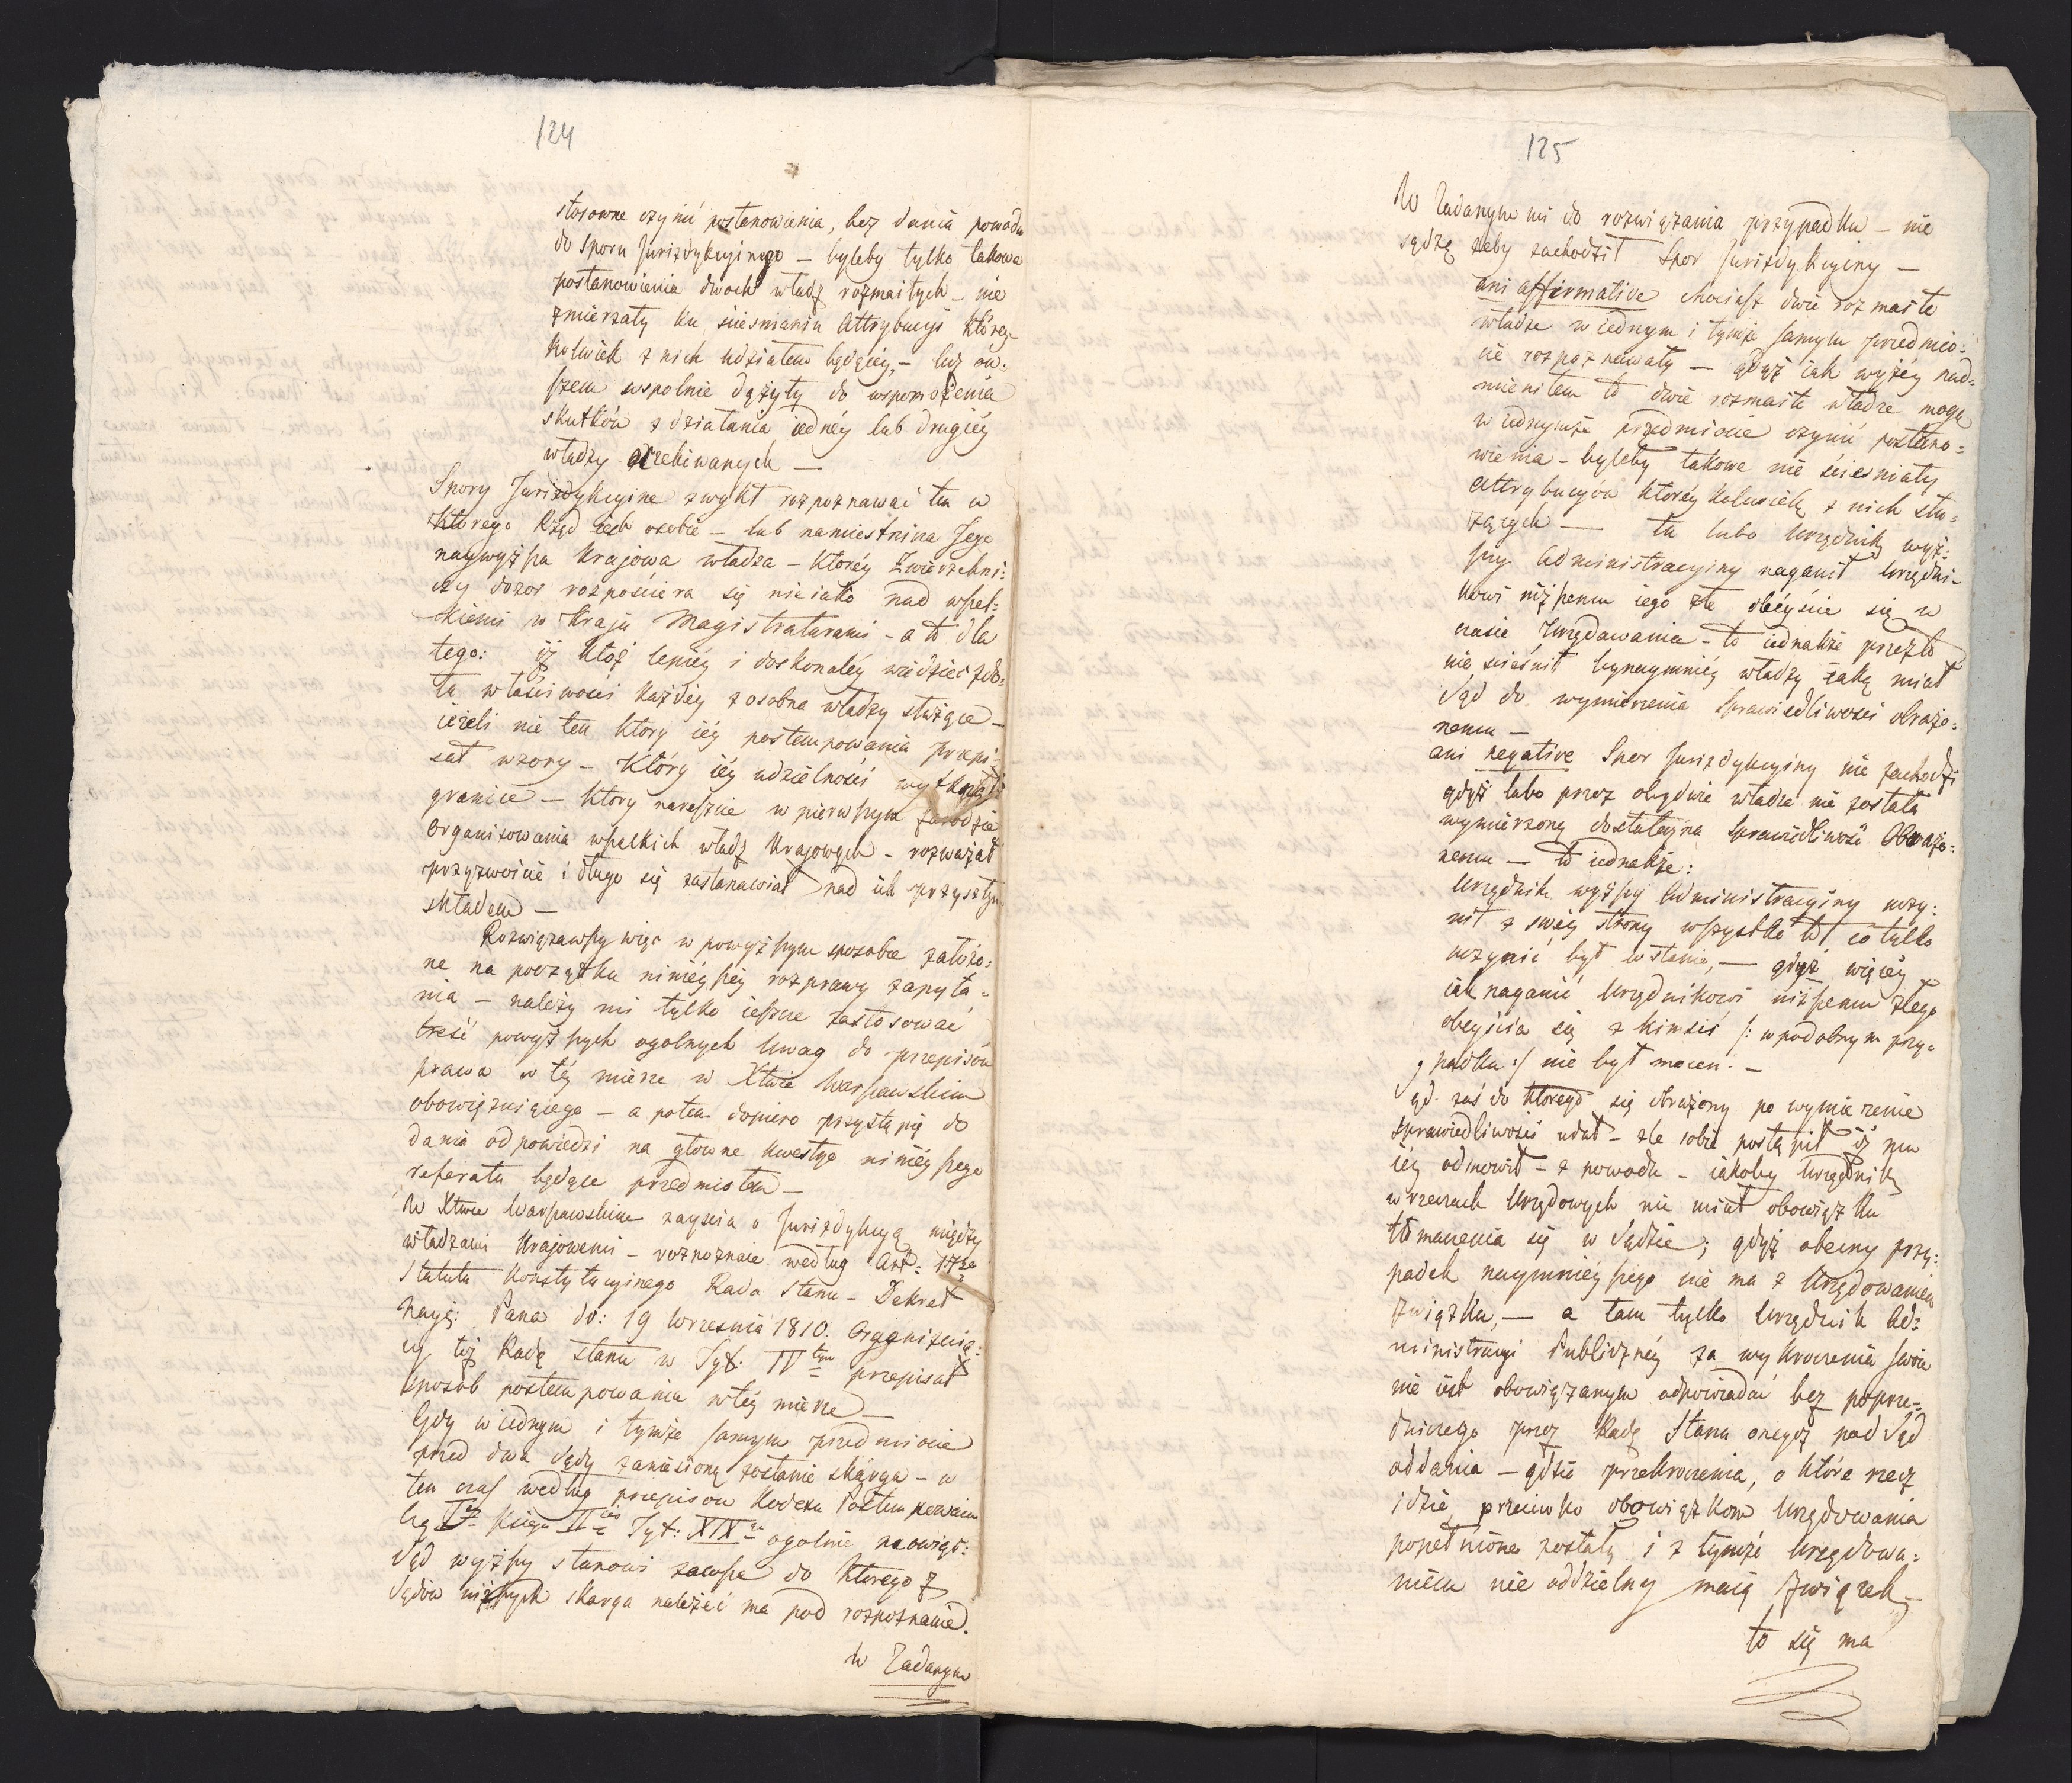 124
stosowne czynić postanowienia, bez dania powodu
do Sporu Jurisdykcyinego – byleby tylko takowe
postanowienia dwoch władz rozmaitych – nie
zmierzały ku scieśnianiu Attrybucyi którey=
kolwiek z nich udziałem będącéy, – lecz ow=
szem wspolnie dążyły do wspomożenia
skutków z działania iednéy lub drugiéy
władzy oczekiwanych –
Spory Jurisdykcyine zwykł rozpoznawać ten w
ktorego Rząd iest osobie – lub namiestnicza Jego
naywyższa krajowa władza – któréy Zwierzchni=
czy dozor rozpościera się nieiako nad wszel=
kiemi w kraju Magistraturami – a to dla
tego: iż któż lepiéy i doskonaléy wiedzieć zdo=
ła właściwości każdéy z osobna władzy służące –
ieżeli nie ten ktory iéy postempowania przepi=
sał wzory – który iéy udzielności wytknął
granice – ktory nareszcie w pierwszym zarodzie
organizowania wszelkich władz krajowych – rozważał
przyzwoicie i długo się zastanawiał nad ich przyszłym
składem –
Rozwiązawszy więc w powyższym sposobie założo=
ne na początku ninieyszéy rozprawy zapyta=
nia – należy mi tylko ieszcze zastosować
treść powyższych ogolnych Uwag do przepisów
prawa w téy mierze w Xtwie Warszawskim
obowiązuiącego – a potem dopiero przystąpię do
dania odpowiedzi na głowne kwestye ninieyszego
referatu będące przedmiotem –
W Xtwie Warszawskim zayscia o Jurisdykcyą między
władzami Krajowemi – rozpoznaie według Art: 17go
Statutu Konstytucyinego Rada Stanu – Dekret
Nayj: Pana do: 19 Września 1810. Organizuią=
cy też Radę Stanu w Tyt. IVtym przepisał
sposób postempowania w téy mierze –
Gdy w iednym i tymże samym przedmiocie
przed dwa Sądy zaniesioną zostanie skarga – w
ten czas według przepisow Kodexu Postempowania
Księga IIga Tyt: XIX ogolnie
Sąd wyższy stanowi zawsze do ktorego z
Sądow niższych skarga należeć ma pod rozpoznanie.
W Zadanym
125
W Zadanym mi do rozwiązania przypadku – nie
sądzę żeby zachodził Spor Jurisdykcyiny –
ani affirmative chociasz dwie rozmaite
władze w iednym i tymże samym przedmio=
cie rozpoznawały – gdyż iak wyżéy nad=
mieniłem to dwie rozmaite władze mogą
w iednymże przedmiocie czynić postano=
wienia – byleby takowe nie ścieśniały
Attrybucyów któréykolwiek z nich słu=
żących – tu lubo Urzędnik wyż=
szy Administracyiny naganił Urzędni=
kowi niższemu iego złe obéyście się w
czasie Urzędowania – to iednakże przez to
nie scieśnił bynaymniéy władzy iaką miał
Sąd do wymierzenia Sprawiedliwości obrażo=
nemu –
ani negative Spor Jurisdykcyiny nie zachodzi
gdyż lubo przez obydwie władze nie została
wymierzoną dostateczna Sprawiedliwość Obrażo=
nemu – to iednakże:
Urzędnik wyższy Administracyiny uczy=
nił z swéy strony wszystko to co tylko
uczynić był w stanie, – gdyż więcéy
iak naganić Urzędnikowi niższemu złego
obeyścia się z kimsiś /: w podobnym przy=
padku :/ nie był mocen. –
Sąd zaś do ktorego się obrażony po wymierzenie
Sprawiedliwości udał – źle sobie postąpił iż mu
iéy odmowił – z powodu – iakoby Urzędnik
w rzeczach Urzędowych nie miał obowiązku
tłomaczenia się w Sądzie; gdyż obecny przy=
padek naymnieyszego nie ma z Urzędowaniem
związku, – a tam tylko Urzędnik Ad=
ministracyi Publicznéy za wykroczenia swoie
nie iest obowiązanym odpowiadać bez poprze=
dniczego przez Radę Stanu onegoż pod Sąd
oddania – gdzie przekroczenia, o które rzecz
idzie przeciwko obowiązkom Urzędowania
popełnione zostały i z tymże Urzędowa=
niem nie oddzielny maią związek –
to się ma